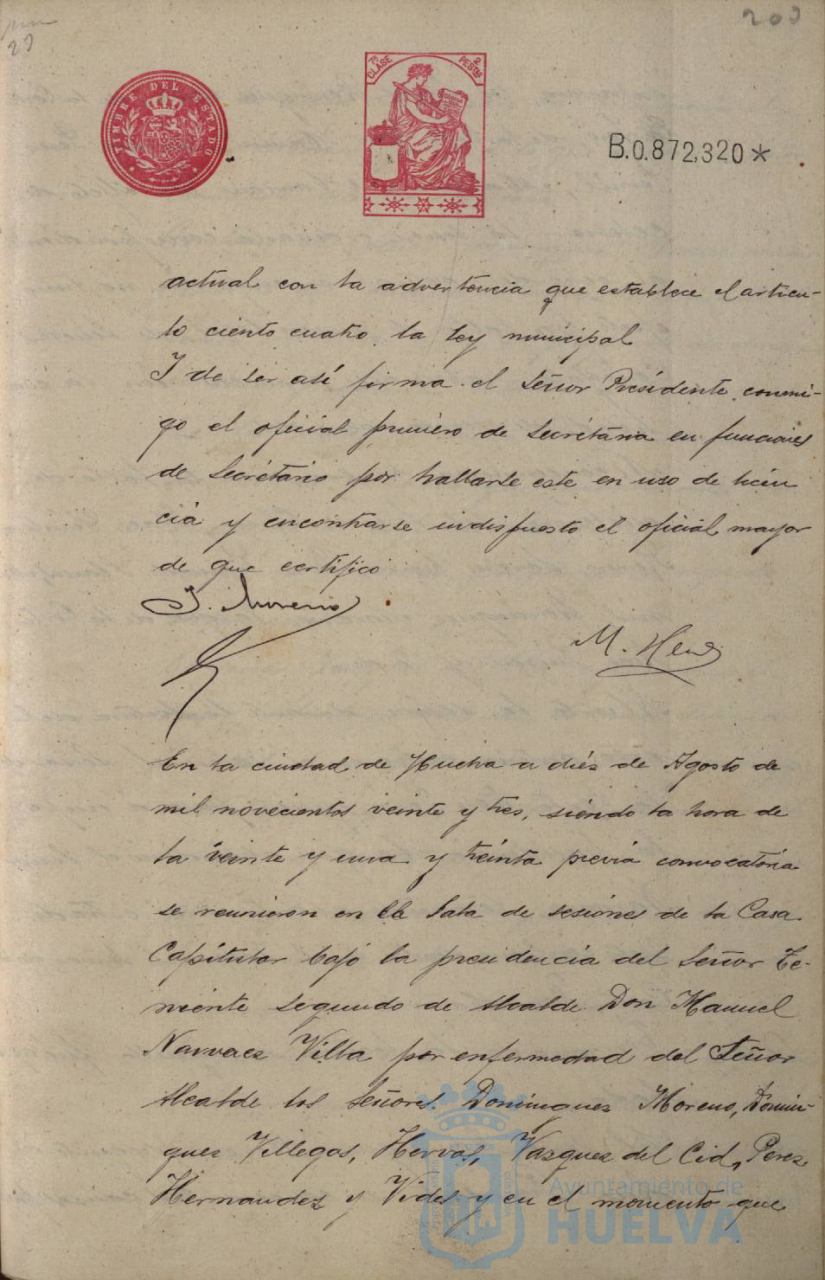 203
TIMBRE DEL ESTADO
7ª CLASE 2 PESETAS
B.0.872,320*
actual con la advertencia que establece el articu-
lo ciento cuatro la ley municipal
Y de ser así firma el Señor Presidente conmi-
go el oficial primero de Secretaria en funciones
de Secretario por hallarse este en uso de licen
cia y encontrarse indispuesto el oficial mayor
de que certifico
J. Moreno
M.
En la ciudad de Huelva a diés de Agosto de
mil novecientos veinte y tres, siendo la hora de
la veinte y una y treinta previa convocatoria
se reunieron en la Sala de sesiones de la Casa
Capitular bajo la presidencia del Señor Te-
niente segundo de Alcalde Don Manuel
Narvaez Villa por enfermedad del Señor
Alcalde los Señores Dominguez Moreno, Domin-
guez Villegas, Hervas, Vazquez del Cid, Perez
Hernandez y Vides y en el momento que
Ayuntamiento de
HUELVA